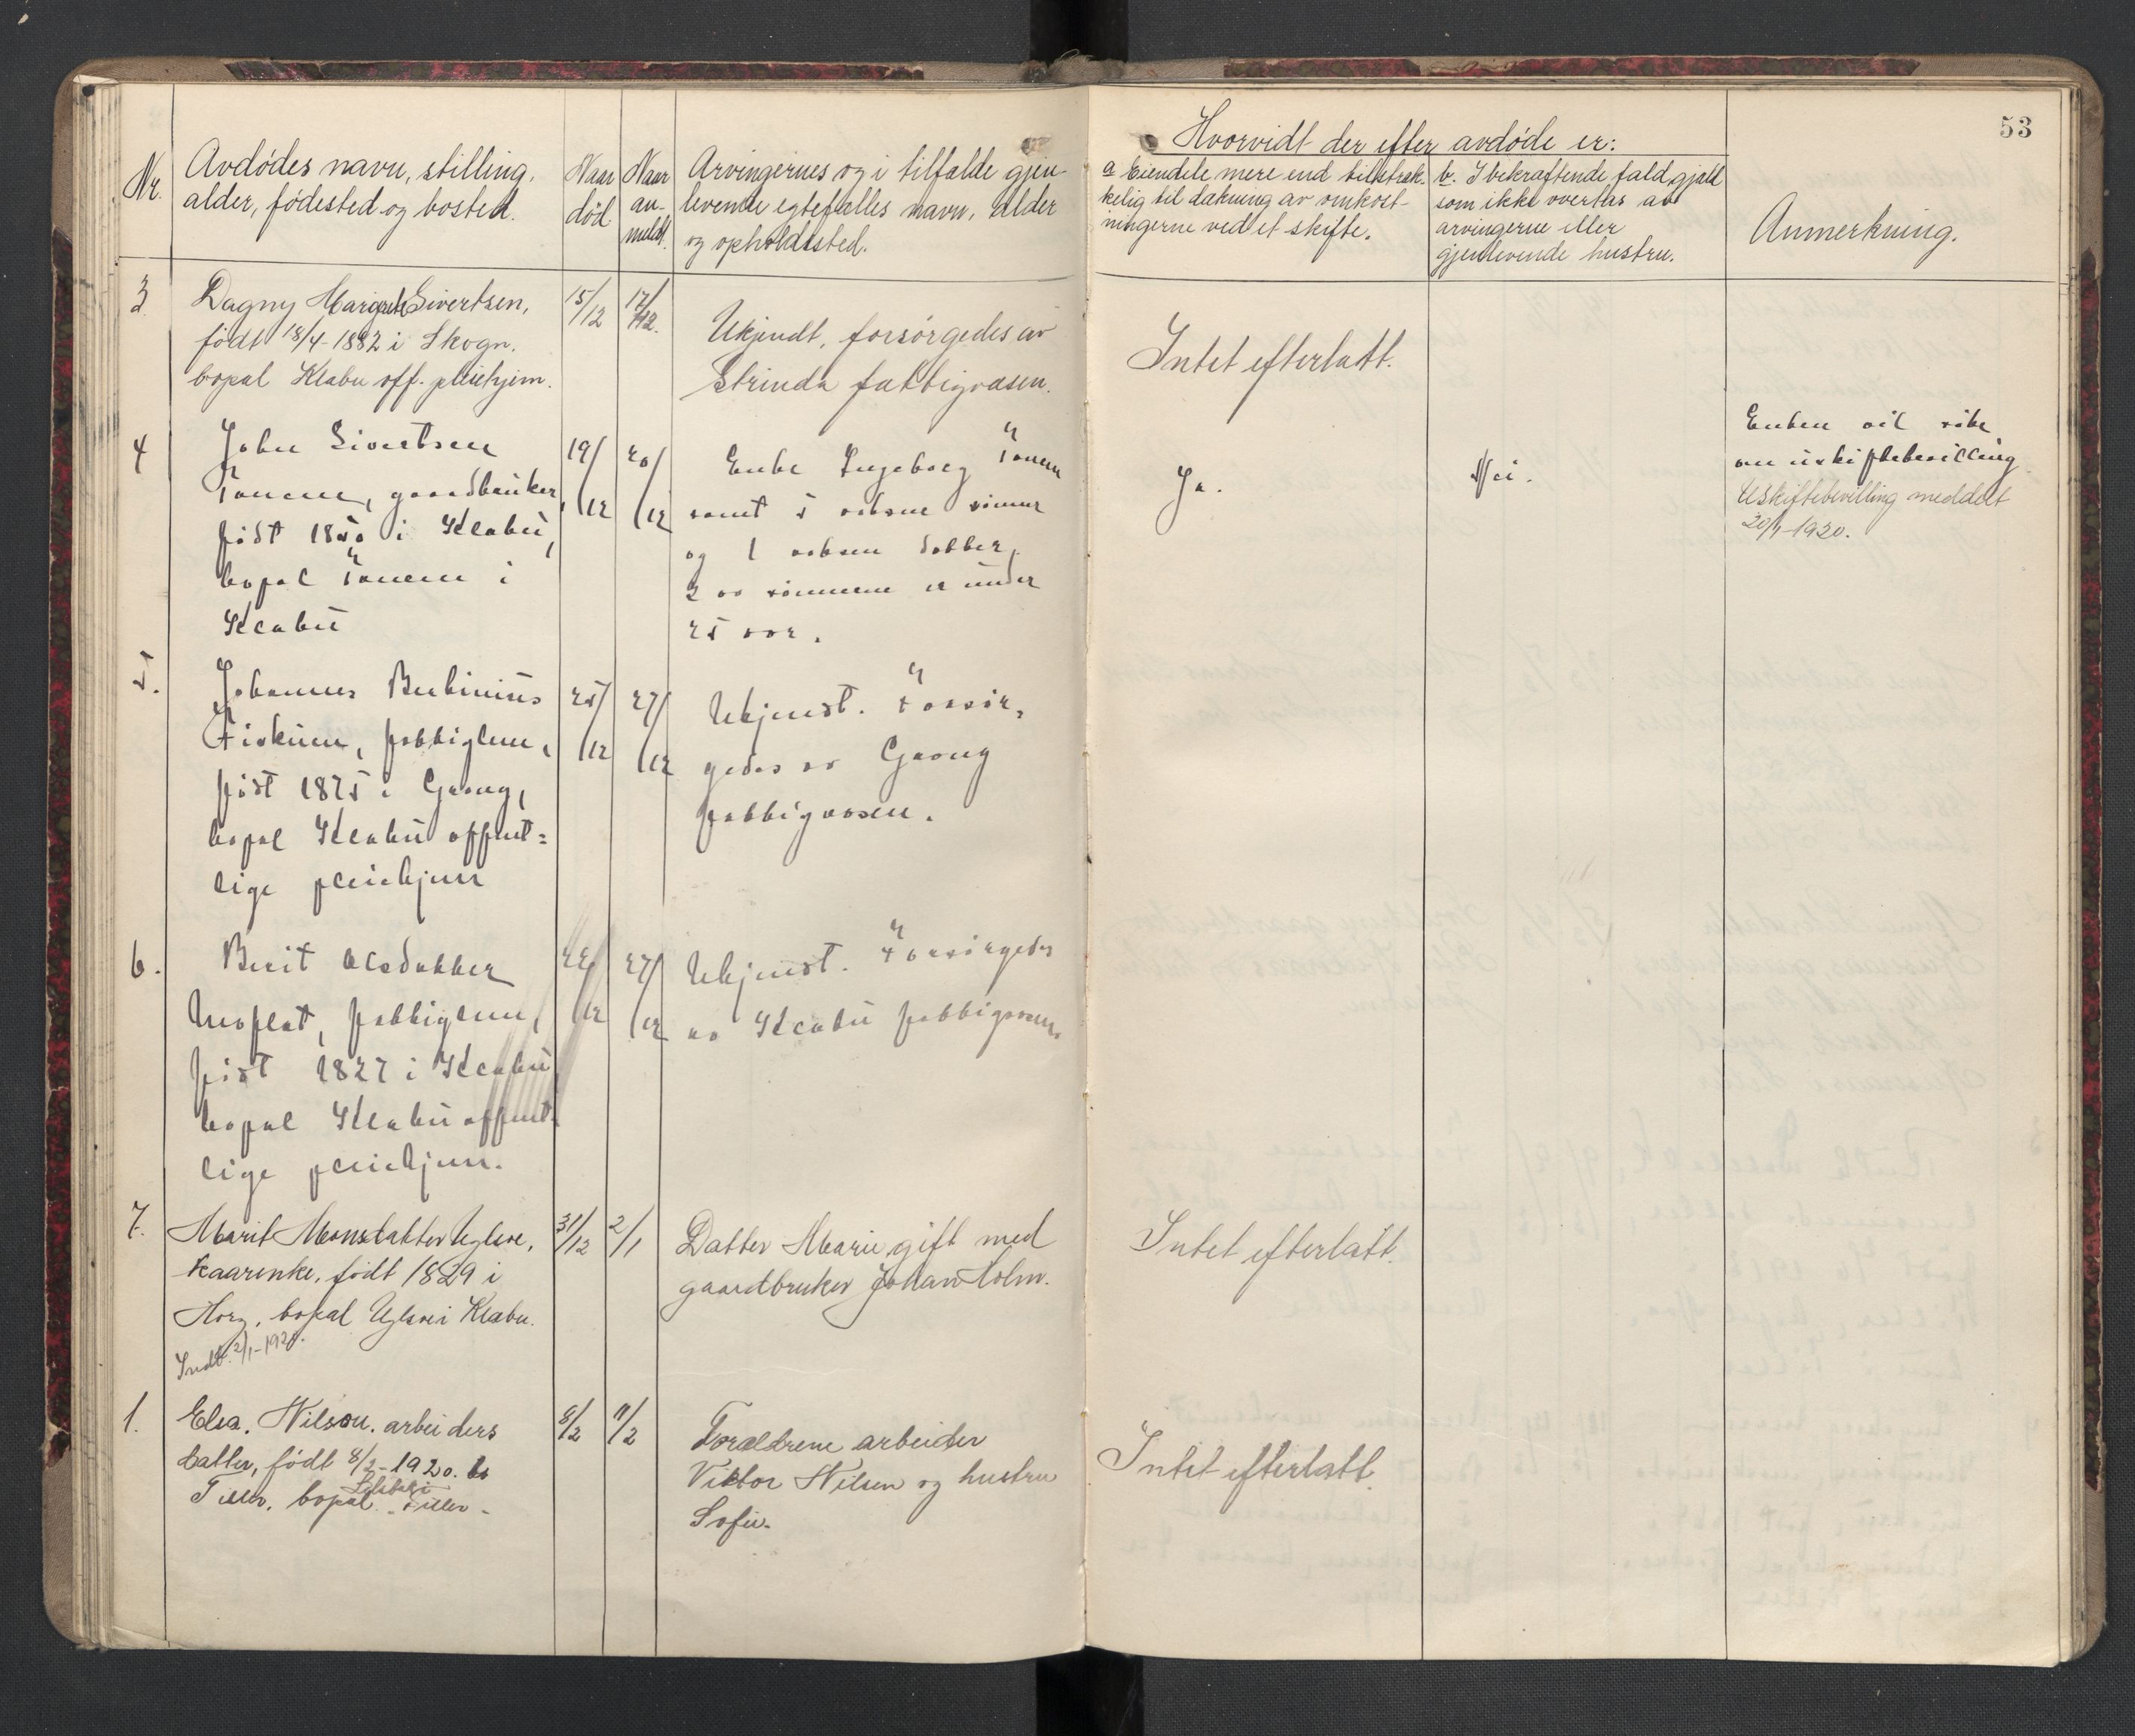 53
Nr.
Avdødes navn, stilling,
alder, fødested og bosted.
Naar
død
Naar
an-
meldt.
Arvingernes og i tilfælde gjen-
levende egtefælles navn, alder
og opholdssted.
Hvorvidt der efter avdøde er:
a Eiendele mere end tilstræk-
kelig til dækning av omkost-
ningerne ved et skifte.
b. I bekræftende fald, gjæld
som ikke overtas av
arvingerne eller
gjenlevende hustru.
Anmerkning.
3
Dagny Margrete Sivertsen,
født 18/4-1882 i Skogn.
bopæl Klæbu off. pleiehjem.
15/12
17/12.
Ukjendt, forsørgedes av
Strinda fattigvæsen.
Intet efterlatt.
4
John Sivertsen
Tanem, gaardbruker,
født 1850 i Klæbu,
bopæl Tanem i
Klæbu
19/12
20/12
Enke Ingeborg Tanem
samt 5 voksne sønner
og 1 voksen datter,
2 av sønnerne er under
25 aar.
Ja.
Nei.
Enken vil søke
om uskiftebevilling
Uskiftebevilling meddelt
20/1-1920.
5.
Johannes Berbinius
Fiskum, fattiglem,
født 1875 i Grong,
bopæl Klæbu offent=
lige pleiehjem
25/12
27/12
Ukjendt. Forsør,
gedes av Grong
fattigvæsen.
6.
Berit Olsdatter
fattiglem,
født 1827 i Klæbu
bopæl Klæbu offent-
lige pleiehjem.
22/12
27/12
Ukjendt. Forsørgedes
av Klæbu fattigvæsen.
7.
Marit Monsdatter Uglere,
kaarenke, født 1829 i
Horg, bopæl Uglere i Klæbu.
Indb. 2/1-1920.
31/12
2/1
Datter Marie gift med
gaardbruker Johan Holm.
Intet efterlatt.
1.
Elsa. Nilson. arbeiders
datter, født 8/2-1920.
Tiller, bopæl Tiller.
8/2
11/2
Forældrene arbeider
Viktor Nilsen og hustru
Sofie.
Intet efterlatt.